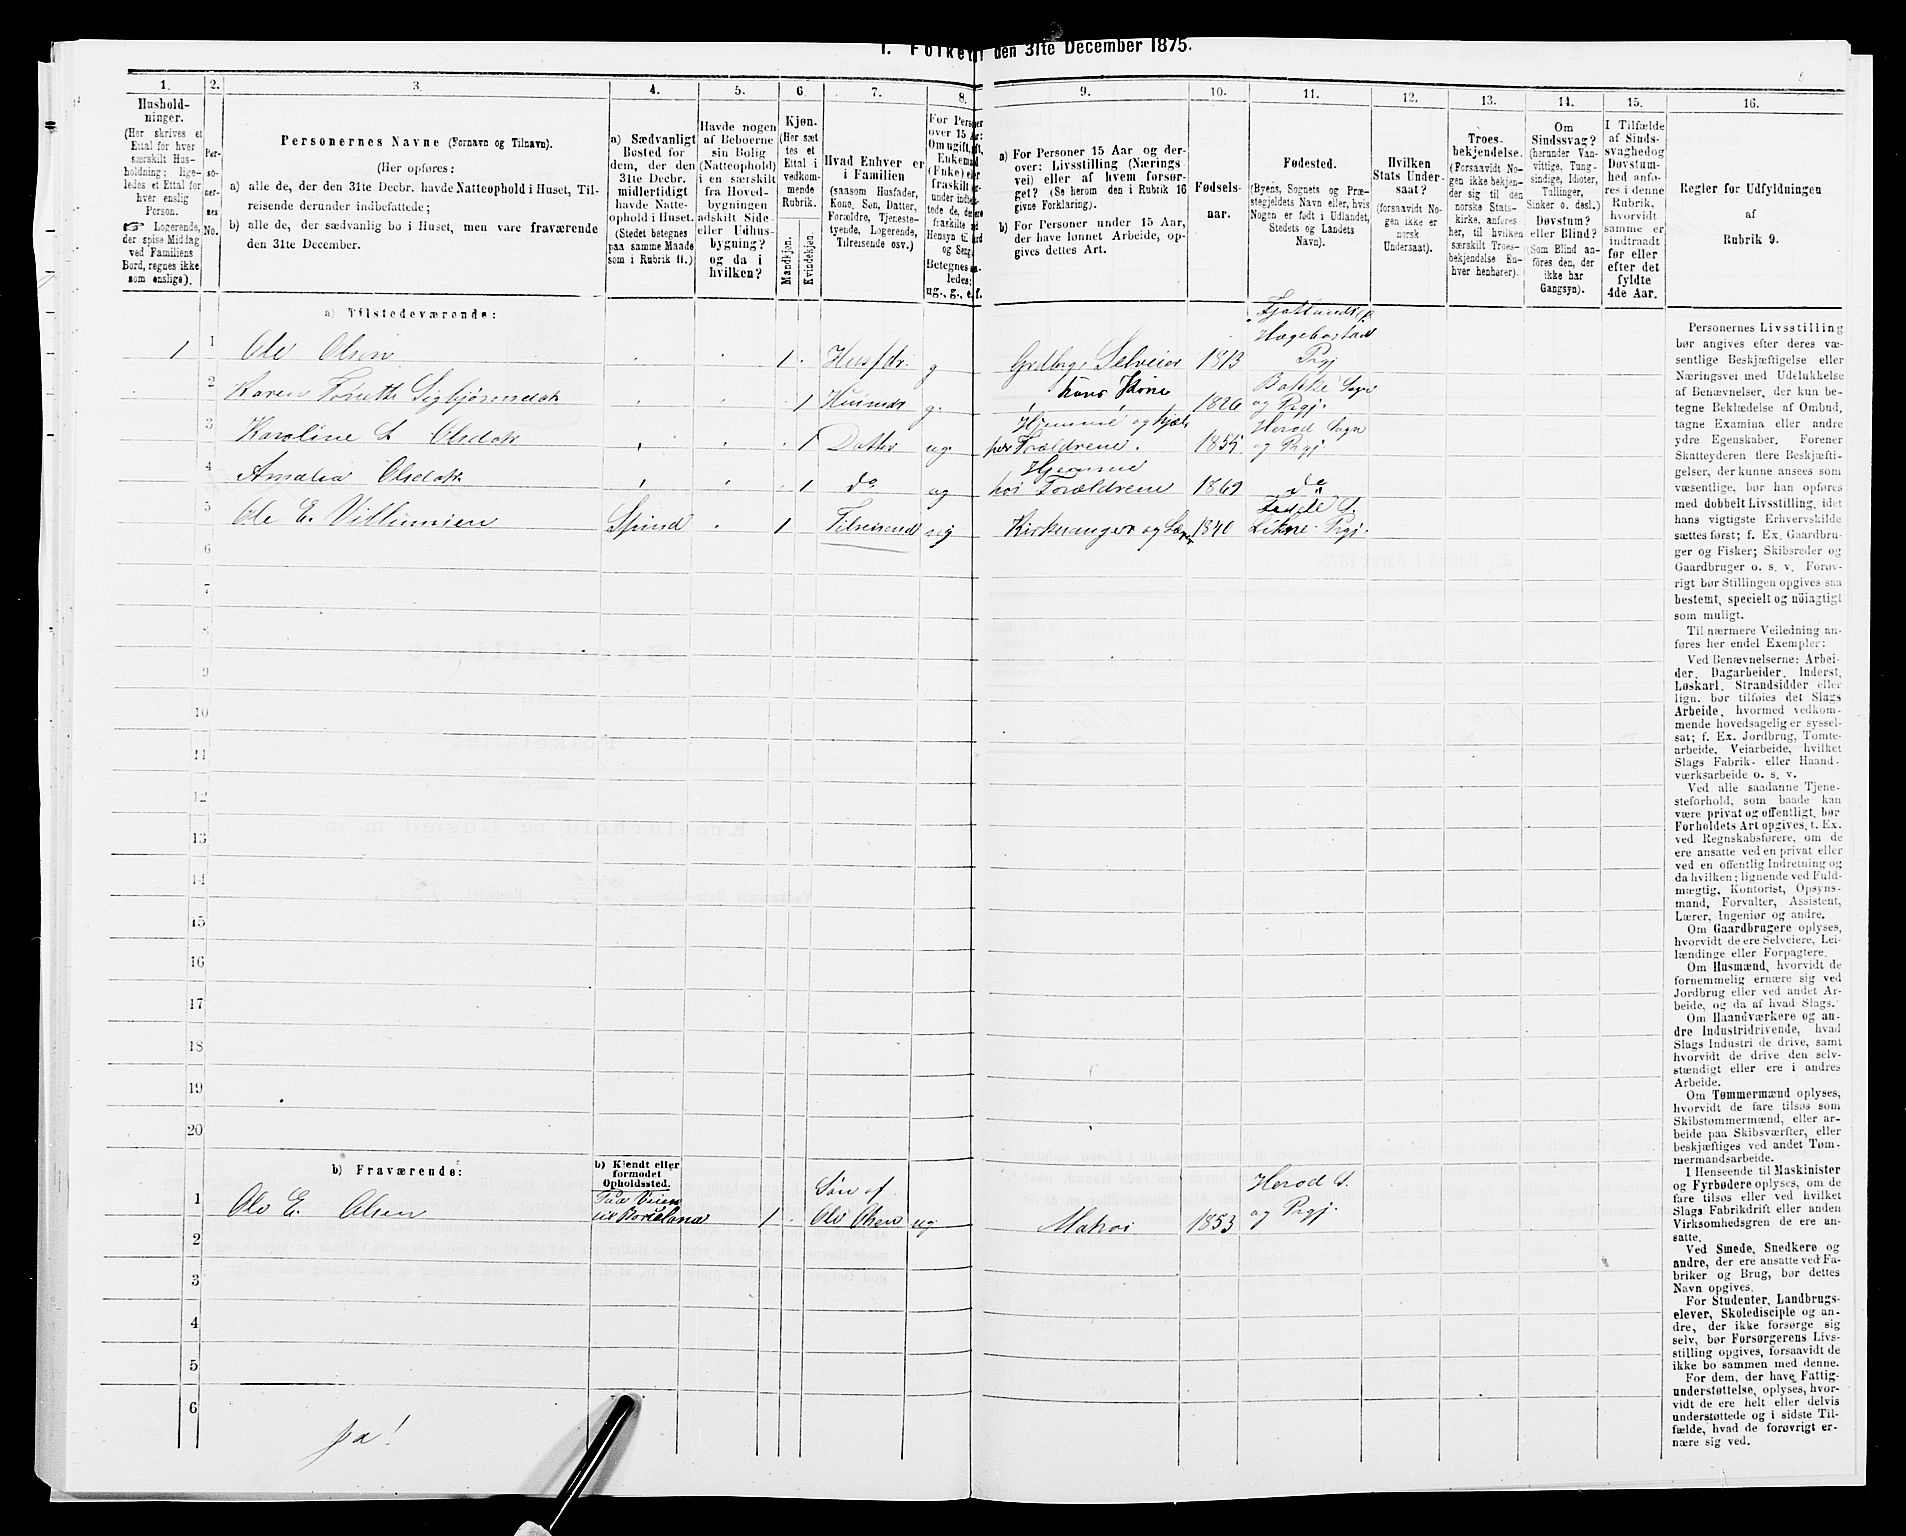 1. Folketal den 31te December 1875.
1.
Hushold-
ninger.
(Her skrives et
Ettal for hver
særskilt Hus-
holdning; lige-
ledes et Ettal for
hver enslig
Person.
☞ Logerende,
der spise Middag
ved Familiens
Bord, regnes ikke
som enslige).
2.
Per-
so-
ner-
nes
No.
3.
Personernes Navne (Fornavn og Tilnavn).
(Her opføres:
a) alle de, der den 31te Decbr. havde Natteophold i Huset, Til-
reisende derunder indbefattede;
b) alle de, der sædvanlig bo i Huset, men vare fraværende
den 31te December.
4.
a) Sædvanligt
Bosted for
dem, der den
31te Decbr.
midlertidigt
havde Natte-
ophold i Huset.
(Stedet betegnes
paa samme Maade
som i Rubrik 11.)
5.
Havde nogen
af Beboerne
sin Bolig
(Natteophold)
i en særskilt
fra Hoved-
bygningen
adskilt Side-
eller Udhus-
bygning?
og da i
hvilken?
6.
Kjøn.
(Her sæt
tes et
Ettal i
vedkom-
mende
Rubrik.
Mandkjøn.
Kvindekjøn.
7.
Hvad Enhver er
i Familien
(saasom Husfader,
Kone, Søn, Datter,
Forældre, Tjeneste-
tyende, Logerende,
Tilreisende osv.)
8.
For Personer
over 15 Aar:
Om ugift, gift,
Enkemand
(Enke) eller
fraskilt
Betegnes saa-
ledes:
ug., g., e, f.
9.
a) For Personer 15 Aar og der-
over: Livsstilling (Nærings
vei) eller af hvem forsør-
get? (Se herom den i Rubrik 16
givne Forklaring).
b) For Personer under 15 Aar,
der have lønnet Arbeide, op-
gives dettes Art.
10.
Fødsels-
aar.
11.
Fødested.
(Byens, Sognets og Præ-
stegjeldets Navn eller, hvis
Nogen er født i Udlandet,
Stedets og Landets
Navn).
12.
Hvilken
Stats Under-
saat?
(forsaavidt No-
gen ikke er
norsk
Undersaat).
13.
Troes-
bekjendelse.
(Forsaavidt No-
gen ikke bekjen-
der sig til den
norske Stats-
kirke, anføres
her, til hvilken
særskilt Troes-
bekjendelse En-
hver henhører).
14.
Om
Sindssvag?
(herunder Van-
vittige, Tung-
sindige, Idioter,
Tullinger,
Sinker o. desl.)
Døvstum?
eller Blind?
(Som Blind an-
føres den, der
ikke har
Gangsyn).
15.
I Tilfælde
af Sinds-
svaghed og
Døvstum-
hed anfø-
res i denne
Rubrik,
hvorvidt
samme er
indtraadt
før eller
efter det
fyldte
4de Aar.
16.
Regler for Udfyldningen
af
Rubrik 9.
a) Tilstedeværende:
1 1 Ole Olsen 1 Husfdr. g Grdbrg. Selveier 1813 Fjotlands S. Hægebostad Prgj
2 Karen Tonette Sigbjørnsdat 1 Husmdr g. hans Kone 1826 Bakke Sogn og Prgj.
3 Karoline S. Olsdatr 1 Datter ug Hjemme og hjæl- per Forældrene. 1855 Herad Sogn og Prgj
4 Amalia Olsdatr 1 do ug Hjemme hos Forældrene 1869 do
5 Ole E. Villumsen Spind 1 Tilreisend ug Kirkesanger og Lærer 1840 Fede S. Likne Prgj.
6
7
8
9
10
11
12
13
14
15
16
17
18
19
20
b) Fraværende:
b) Kjendt eller
formodet
Opholdssted.
1 Ole E. Olsen Paa Veien til Barcelona 1 Søn af Ole Olsen ug Matros 1853 Herad S. og Prgj.
2
3
4
5
6
Ja!
Personernes Livsstilling
bør angives efter deres væ-
sentlige Beskjæftigelse eller
Næringsvei med Udelukkelse
af Benævnelser, der kun be-
tegne Beklædelse af Ombud,
tagne Examina eller andre
ydre Egenskaber. Forener
Skatteyderen flere Beskjæfti-
gelser, der kunne ansees som
væsentlige, bør han opføres
med dobbelt Livsstilling, idet
hans vigtigste Erhvervskilde
sættes først; f. Ex. Gaardbru-
ger og Fisker; Skibsreder og
Gaardbruger o. s. v. Forøv-
rigt bør Stillingen opgives saa
bestemt, specielt og nöiagtigt
som muligt.
Til nærmere Veiledning an-
føres her endel Exempler:
Ved Benævnelserne: Arbei-
der, Dagarbeider, Inderst,
Løskarl, Strandsidder eller
lign. bør tilføies det Slags
Arbeide, hvormed vedkom-
mende hovedsagelig er syssel-
sat; f. Ex. Jordbrug, Tomte-
arbeide, Veiarbeide, hvilket
Slags Fabrik- eller Haand-
værksarbeide o. s. v.
Ved alle saadanne Tjene-
steforhold, som baade kan
være privat og offentligt, bør
Forholdets Art opgives, t. Ex.
ved Regnskabsførere, om de
ere ansatte ved en privat eller
ved en offentlig Indretning og
da hvilken; lignende ved Fuld-
mægtig, Kontorist, Opsyns-
mand, Forvalter, Assistent,
Lærer, Ingeniør og andre.
Om Gaardbrugere oplyses,
hvorvidt de ere Selveiere, Lei-
lændinge eller Forpagtere.
Om Husmænd, hvorvidt de
fornemmelig ernære sig ved
Jordbrug eller ved andet Ar-
beide, og da af hvad Slags.
Om Haandværkere og an-
dre Industridrivende, hvad
Slags Industri de drive, samt
hvorvidt de drive den selv-
stændigt eller ere i andres
Arbeide.
Om Tømmermænd oplyses,
hvorvidt de fare tilsøs som
Skibstømmermænd, eller ar-
beide paa Skibsværfter, eller
beskjæftiges ved andet Tøm-
mermandsarbeide.
I Henseende til Maskinister
og Fyrbødere oplyses, om de
fare tilsøs eller ved hvilket
Slags Fabrikdrift eller anden
Virksomhed de ere an-
satte.
Ved Smede, Snedkere og
andre, der ere ansatte ved Fa-
briker og Brug, bør dettes
Navn opgives.
For Studenter, Landbrugs-
elever, Skoledisciple og an-
dre, der ikke forsørge sig
selv, bør Forsørgerens Livs-
stilling opgives, forsaavidt de
ikke bo sammen med denne.
For dem, der have Fattig-
understøttelse, oplyses, hvor-
vidt de ere helt eller delvis
understøttede og i sidste Til-
fælde, hvad de forøvrigt er-
nære sig ved.